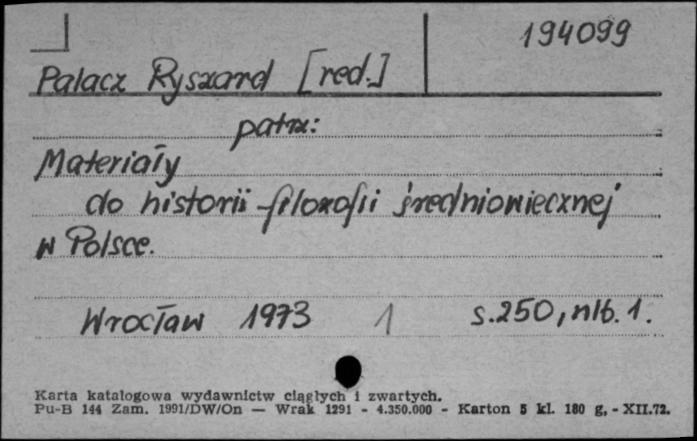 194099
Palacz Ryszard [red.]
patrz:
Materiały
do historii filozofii średniowiecznej
w Polsce.
Wrocław 1973 1 s.250, nlb. 1.
Karta katalogowa wydawnictw ciągłych i zwartych.
Pu-B 144 Zam. 1991/DW/On — Wrak 1291 - 4.350.000 - Karton 5 kl. 180 g, - XII.72.